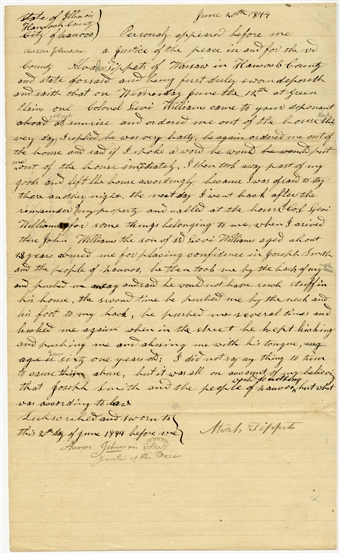 State of Illinois
Hancock County
City of Nauvoo
June 20th 1844
Personly appeared before me
Aaron Johnson a justice of the peace in and for the sd
County Alvah Tippets of Warsaw in Hancock County
and state forsaid and being first duly sworn deposeth
and saith that on Wednesday June the 12th at Green
Plain one Colonel Levi Williams came to your deponant
about sunrise and ordered me out of the house this
very day, I replied he was very hasty, he again ordered me out of
the house and said if I spoke a word he would put
me out of the house immediately, I then took away part of my
goods and left the house accordingly because I was afraid to stay
there another night, the next day I went back after the
remainder my property and called at the house Col Levi
Williams for some things belonging to me, when I arived
there John Williams the son of sd Levi Williams aged about
years abused me for placing confidence in Joseph Smith
and the people of Nauvoo, he then took me by the back of my
and pushed me away and said he would not have such stuff in
his house, the second time he pushed me by the neck and
his foot to my back, he pushed me several times and
kicked me again when in the street he kept kicking
and pushing me and abusing me with his tongue, my
age is sixty one years old; I did not say any thing to him
to cause this abuse, but it was all on account of my believing
that Joseph Smith and the people of Nauvoo would do nothing but what
was according to law
Subscribed and sworn to
this 20th day of June 1844 before me
Alvah Tippets
Aaron Johnson
Justice of the Peace